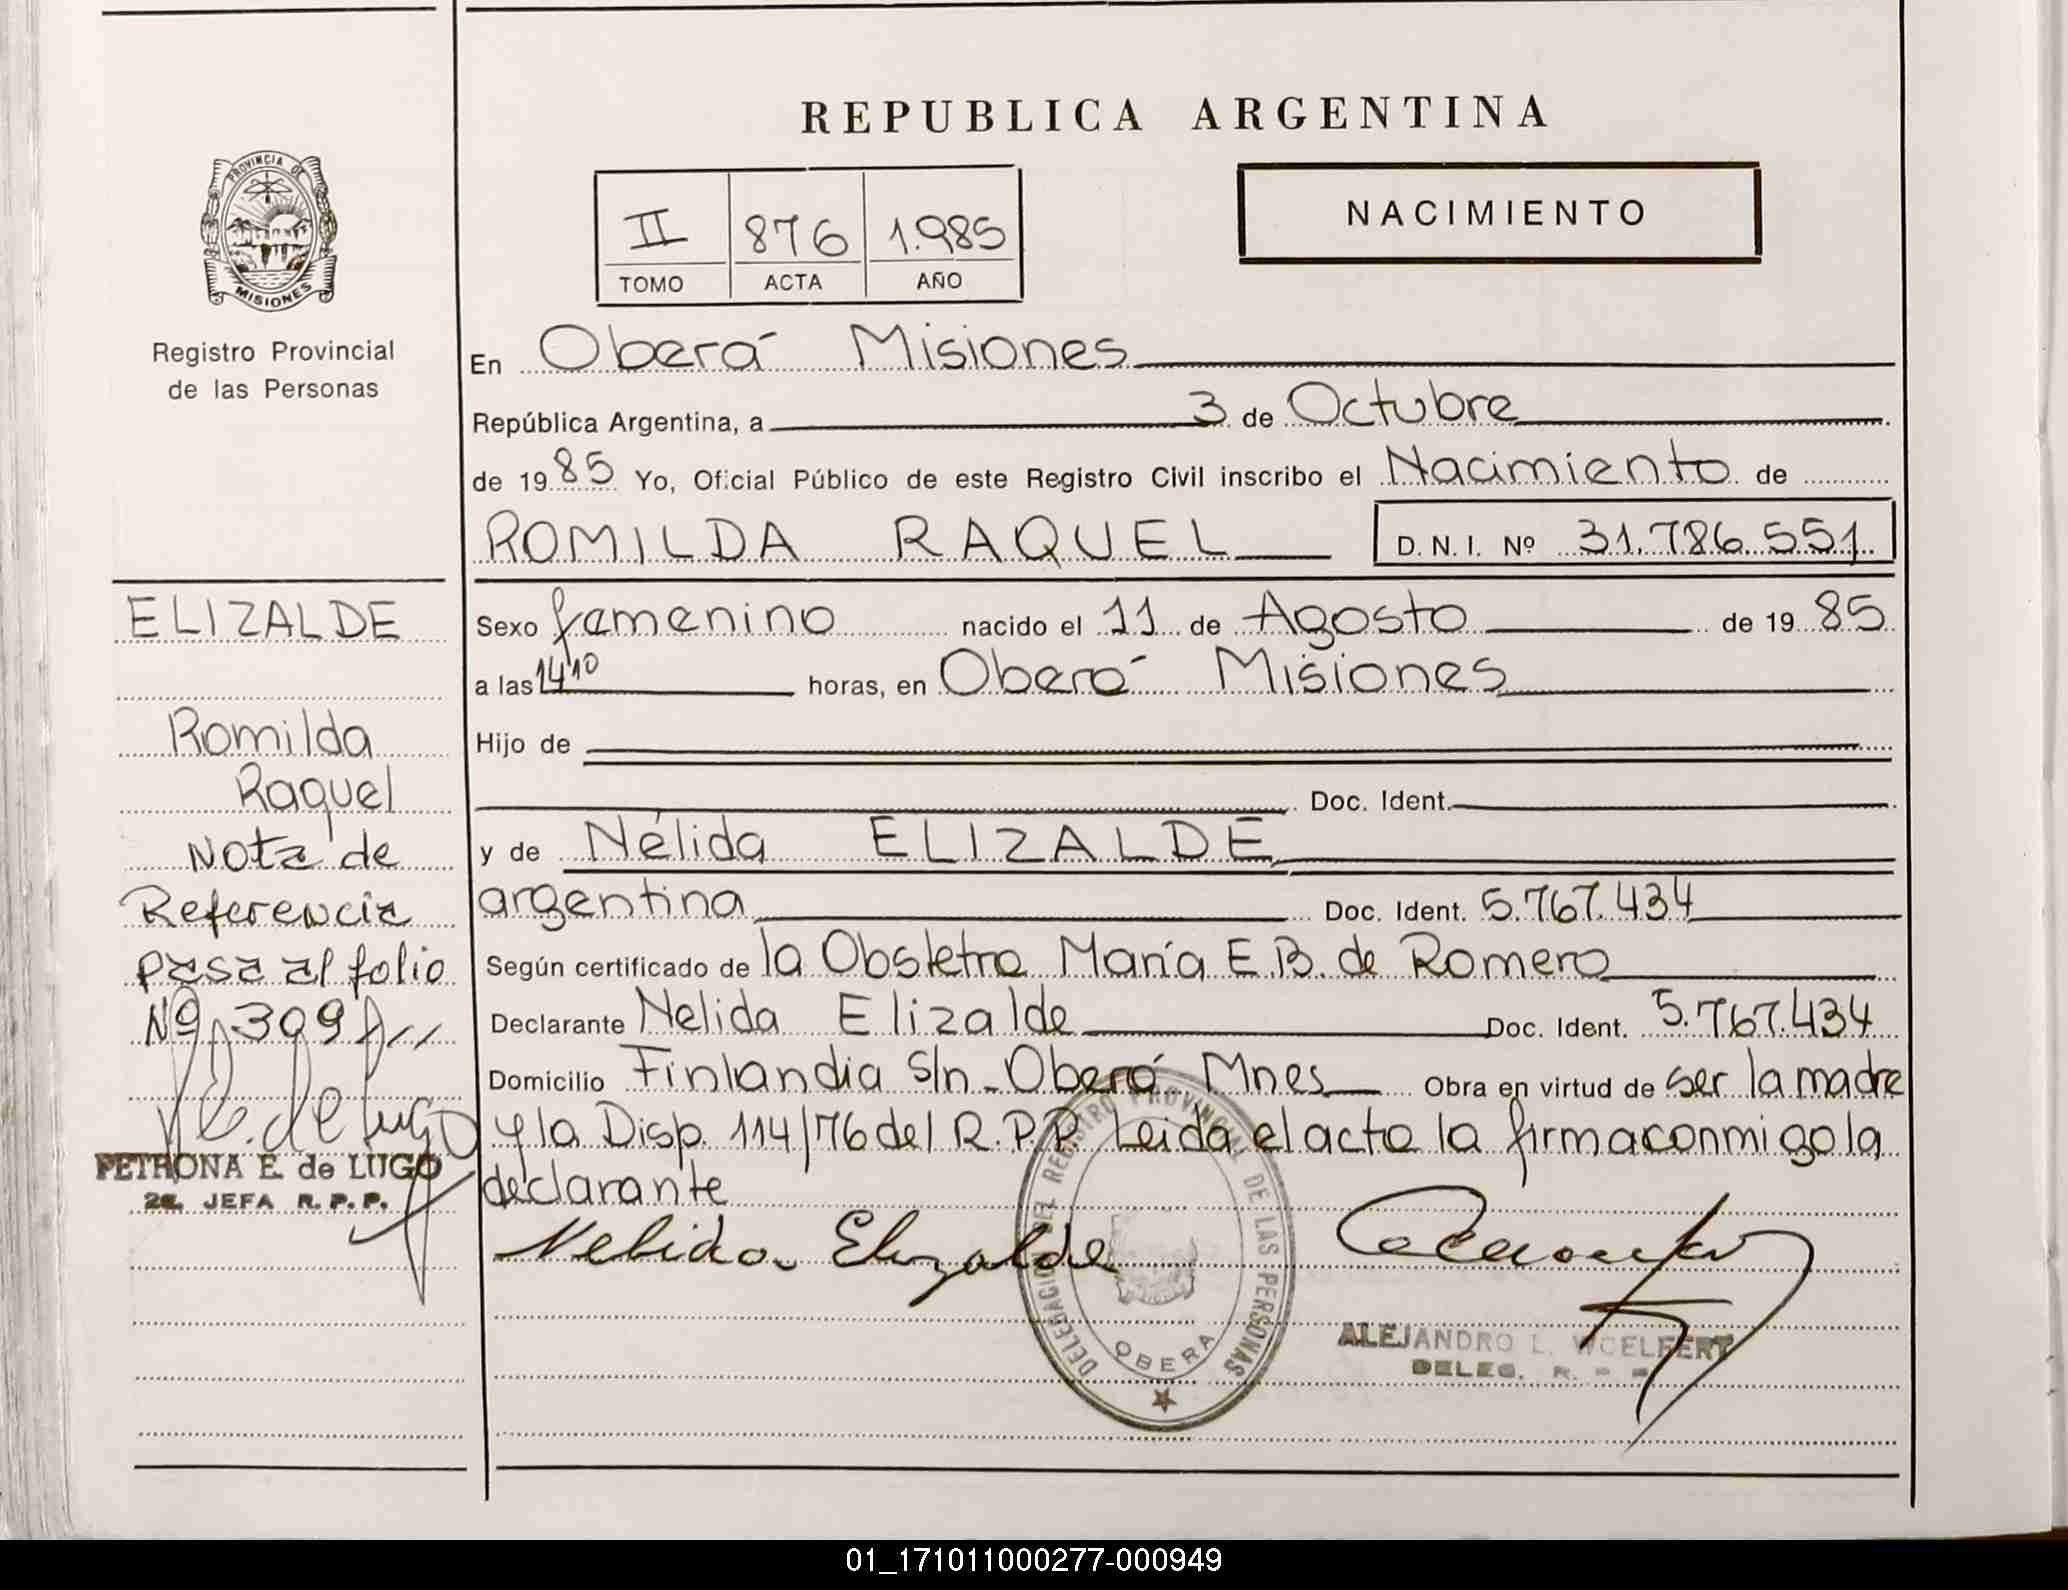 REPUBLICA ARGENTINA
PROVINCIA DE
MISIONES
Registro Provincial
de las Personas
II 876 1.985
TOMO ACTA AÑO
NACIMIENTO
En Oberá Misiones
República Argentina, a 3 de Octubre
de 1985 Yo, Oficial Público de este Registro Civil inscribo el Nacimiento de
ROMILDA RAQUEL D.N.I. Nº 31.786.551
Sexo femenino nacido el 11 de Agosto de 1985
a las 14 10 horas, en Oberá Misiones
Hijo de
Doc. Ident.
y de Nélida ELIZALDE
argentina Doc. Ident. 5.767.434
Según certificado de la Obstetra María E.B. de Romero
Declarante Nelida Elizalde Doc. Ident. 5.767.434
Domicilio Finlandia S/n - Oberá Mnes Obra en virtud de ser la madre
y la Disp. 114/76 del R.P.P. Leida el acta la firma conmigo la
declarante
Nelida Elizalde
DELEGACION DEL REGISTRO PROVINCIAL DE LAS PERSONAS
OBERA
ALEJANDRO L. WOELFERT
DELEG. R. P. P.
ELIZALDE
Romilda
Raquel
Nota de
Referencia
pasa al folio
Nº 399
de Lugo
PETRONA E. de LUGO
2a. JEFA R.P.P.
01_171011000277-000949